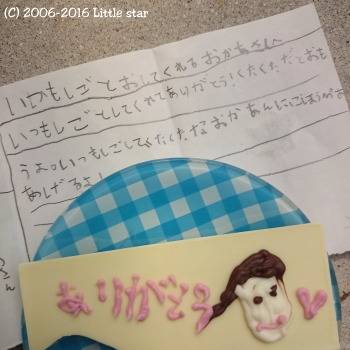 (C) 2006-2016 Little star
いつもしごとおしてくれるおかあさんへ
いつもしごとしてくれてありがとう!くたくただとおも
うよ。いつもしごしてくたくたなおかあんにごほうびお
あげるよ!
ありがとう